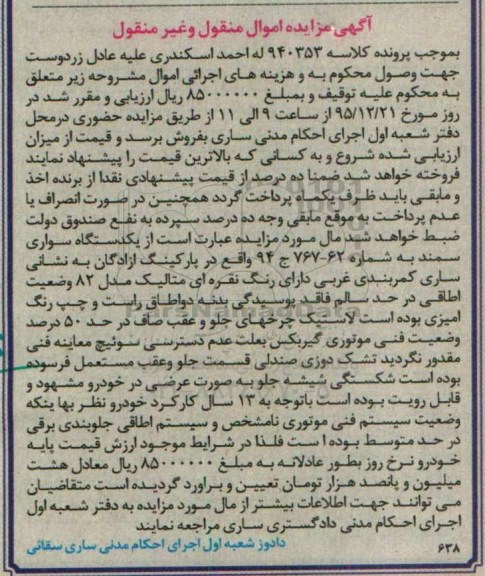 آگهی مزایده اموال منقول وغیر منقول
بموجب پرونده کلاسه ۹۴۰۳۵۳ له احمد اسکندری علیه عادل زردوست
جهت وصول محکوم به و هزینه های اجرائی اموال مشروحه زیر متعلق
به محکوم علیه توقیف و بمبلغ ۸۵۰۰۰۰۰۰ ریال ارزیابی و مقرر شد در
روز مورخ ۹۵/۱۲/۲۱ از ساعت ۹ الی ۱۱ از طریق مزایده حضوری درمحل
دفتر شعبه اول اجرای احکام مدنی ساری بفروش برسد و قیمت از میزان
ارزیابی شده شروع و به کسانی که بالاترین قیمت را پیشنهاد نمایند
فروخته خواهد شد ضمنا ده درصد از قیمت پیشنهادی نقدا از برنده اخذ
و مابقی باید ظرف یکماه پرداخت گردد همچنین در صورت انصراف یا
عدم پرداخت به موقع مابقی وجه ده درصد سپرده به نفع صندوق دولت
ضبط خواهد شد مال مورد مزایده عبارت است از یکدستگاه سواری
سمند به شماره ۶۲-۷۶۷ ج ۹۴ واقع در پارکینگ ازادگان به نشانی
ساری کمربندی غربی دارای رنگ نقره ای متالیک مدل ۸۲ وضعیت
اطاقی در حد سالم فاقد پوسیدگی بدنه دواطاق راست و چپ رنگ
امیزی بوده است لاستیک چرخهای جلو و عقب صاف در حد ۵۰ درصد
وضعیت فنی موتوری گیربکس بعلت عدم دسترسی سوئیچ معاینه فنی
مقدور نگردید تشک دوزی صندلی قسمت جلو وعقب مستعمل فرسوده
بوده است شکستگی شیشه جلو به صورت عرضی در خودرو مشهود و
قابل رویت بوده است باتوجه به ۱۳ سال کارکرد خودرو نظر بها ینکه
وضعیت سیستم فنی موتوری نامشخص و سیستم اطاقی جلوبندی برقی
در حد متوسط بوده ا ست فلذا در شرایط موجود ارزش قیمت پایه
خودرو نرخ روز بطور عادلانه به مبلغ ۸۵۰۰۰۰۰۰ ریال معادل هشت
میلیون و پانصد هزار تومان تعیین و براورد گردیده است متقاضیان
می توانند جهت اطلاعات بیشتر از مال مورد مزایده به دفتر شعبه اول
اجرای احکام مدنی دادگستری ساری مراجعه نمایند
دادورز شعبه اول اجرای احکام مدنی ساری سقائی
۶۳۸